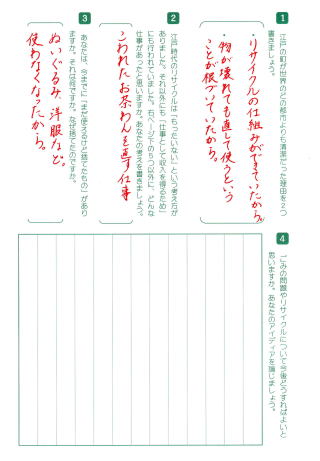 1 江戸の町が世界のどの都市よりも清潔だった理由を2つ
書きましょう。
・リサイクルの仕組みができていたから。
・物が壊れても直して使うという
ことが根づいていたから。
2 江戸時代のリサイクルは「もったいない」という考え方が
ありました。それ以外にも「仕事として収入を得るため」
にも行われていました。右ページ下の5つ以外に、どんな
仕事があったと思いますか。あなたの考えを書きましょう。
こわれたお茶わんを直す仕事
3 あなたは、今までに「まだ使えるけど捨てたもの」があり
ますか。それは何ですか。なぜ捨てたのですか。
ぬいぐるみ、洋服など。
使わなくなったから。
4 ごみの問題やリサイクルについて今後どうすればよいと
思いますか。あなたのアイディアを論じましょう。